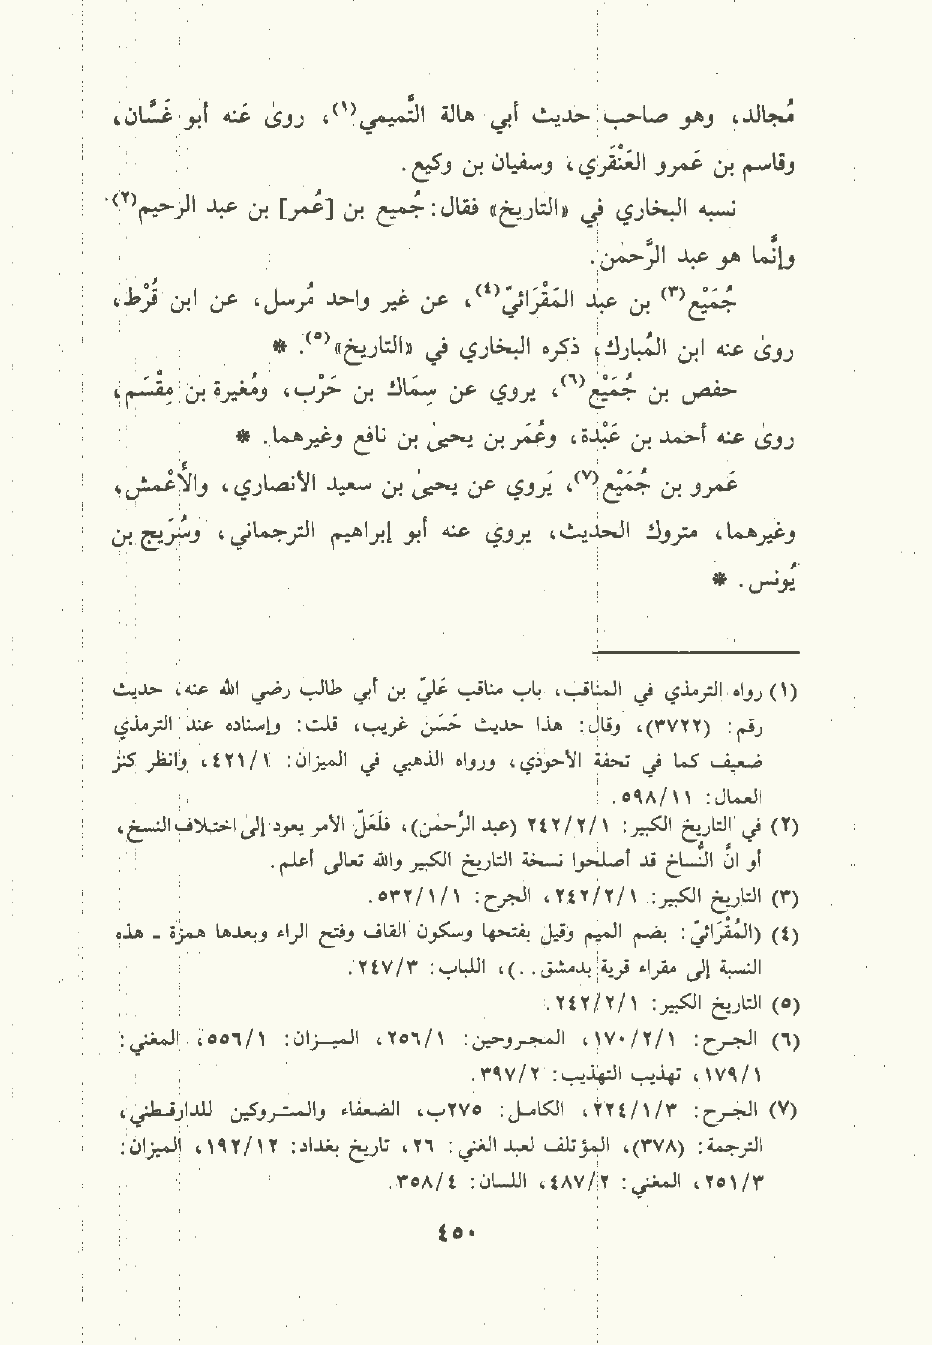 مُجالد، وهو صاحب حديث أبي هالة التَّميمي(١)، روىٰ عَنه أبو غَسَّان،
وقاسم بن عَمرو العَنْقَزي، وسفيان بن وكيع.
نسبه البخاري في «التاريخ» فقال: جُميع بن [عُمر] بن عبد الرحيم(٢)
وإنَّما هو عبد الرَّحمٰن.
جُمَيْع(٣) بن عبد المَقْرَائيّ(٤)، عن غير واحد مُرسل، عن ابن قُرْط،
روىٰ عنه ابن المُبارك، ذكره البخاري في «التاريخ»(٥). *
حفص بن جُمَيْع(٦)، يروي عن سِمَاك بن حَرْب، ومُغيرة بن مِقْسَم،
روىٰ عنه أحمد بن عَبْدة، وعُمَر بن يحيىٰ بن نافع وغيرهما. *
عَمرو بن جُمَيْع(٧)، يَروي عن يحيىٰ بن سعيد الأنصاري، والأَعْمش،
وغيرهما، متروك الحديث، يروي عنه أبو إبراهيم الترجماني، وسُرَيج بن
يُونس. *
(١) رواه الترمذي في المناقب، باب مناقب عَليّ بن أبي طالب رضي الله عنه، حديث
رقم: (٣٧٢٢)، وقال: هذا حديث حَسَن غريب، قلت: وإسناده عند الترمذي
ضعيف كما في تحفة الأحوذي، ورواه الذهبي في الميزان: ٤٢١/١، وانظر كنز
العمال: ٥٩٨/١١.
(٢) في التاريخ الكبير: ٢٤٢/٢/١ (عبد الرَّحمٰن)، فلَعَلّ الأمر يعود إلىٰ اختلاف النسخ،
أو انَّ النُّساخ قد أصلحوا نسخة التاريخ الكبير والله تعالى أعلم.
(٣) التاريخ الكبير: ٢٤٢/٢/١، الجرح: ٥٣٢/١/١.
(٤) (المُقْرَائيّ: بضم الميم وقيل بفتحها وسكون القاف وفتح الراء وبعدها همزة ـ هذه
النسبة إلى مقراء قرية بدمشق. .)، اللباب: ٢٤٧/٣.
(٥) التاريخ الكبير: ٢٤٢/٢/١.
(٦) الجرح: ١٧٠/٢/١، المجروحين: ٢٥٦/١، الميزان: ٥٥٦/١، المغني:
١٧٩/١، تهذيب التهذيب: ٣٩٧/٢.
(٧) الجرح: ٢٢٤/١/٣، الكامل: ٢٧٥ب، الضعفاء والمتروكين للدارقطني،
الترجمة: (٣٧٨)، المؤتلف لعبد الغني: ٢٦، تاريخ بغداد: ١٩٢/١٢، الميزان:
٢٥١/٣، المغني: ٤٨٧/٢، اللسان: ٣٥٨/٤.
٤٥٠